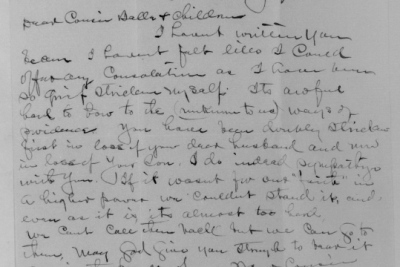 Dear Cousin Balle & Children
I havent written you
becaus I havent felt like I could
offer any Consolation as I have been
so grief stricken myself. Its awful
hard to bow to the (unknown to us) ways of
providence You have been doubly stricken
first in loss of your dear husband and now
in loss of your Son. I do indeed sympathize
with you. If it wasnt for our "faith" in
a higher power we couldnt stand it, and
even as it is its almost too hard
We cant call them back but we can go to
them, May God give you strength to bear it
Cousin